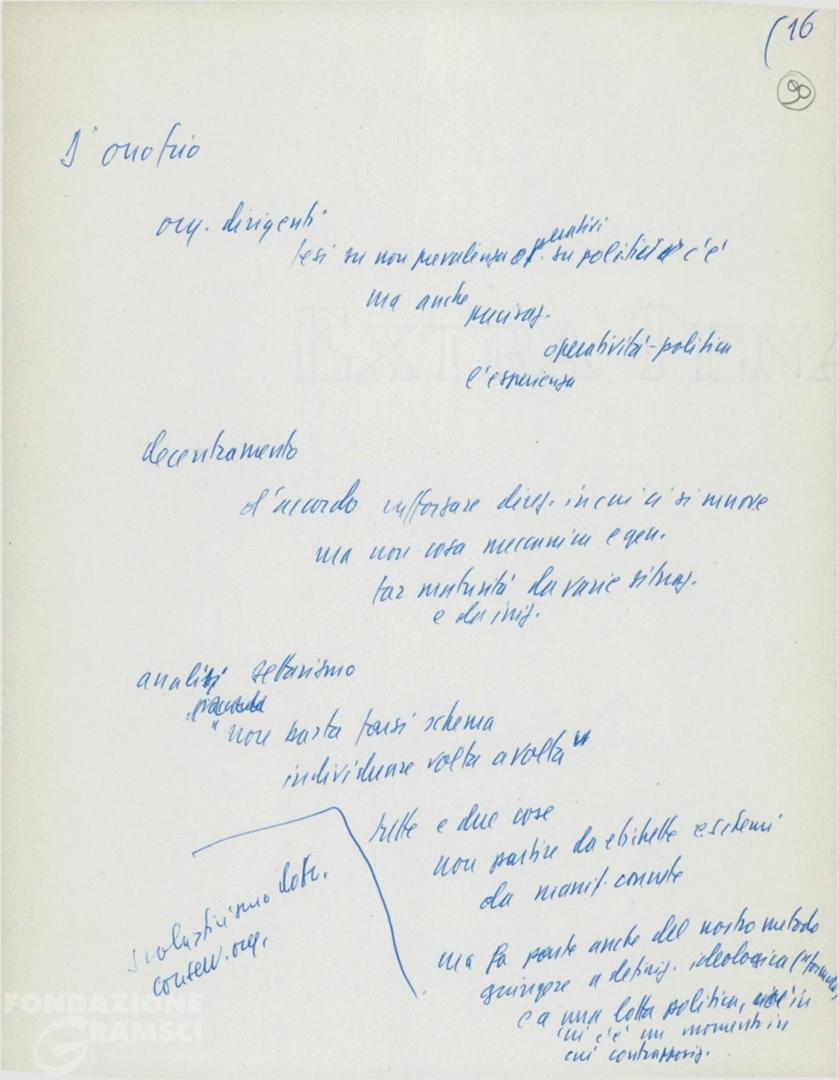 (16
90
D'onofrio
org. dirigenti
tesi su non prevalenza op. su politici c'è
operativi
ma anche
precisaz.
operatività-politica
l'esperienza
decentramento
d'accordo rafforzare direz. in cui ci si muove
ma non cosa meccanica e gen.
far maturità da varie situaz.
e da iniz.
analisi settarismo
"non basta farsi schema
individuare volta a volta"
tutte e due cose
non partire da etichette e schemi
da manif. concrete
scolasticismo dott.
conserv. org.
ma fa parte anche del nostro metodo
giungere a definiz. ideologica ("formula"
e a una lotta politica, cioè in
cui c'è un momento in
cui contrappos.
FONDAZIONE
GRAMSCI